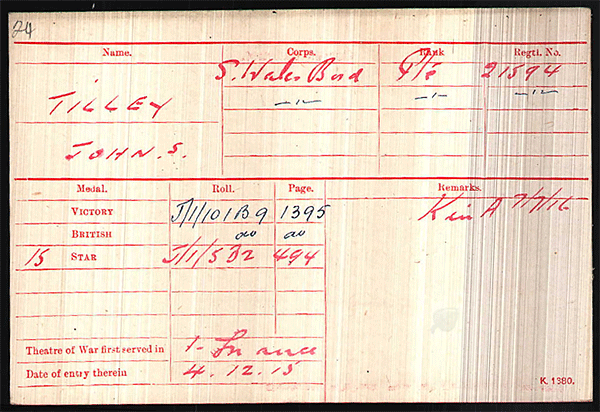 24
Name. Corps. Rank Regtl. No.
S. Wales Bord Pte 21594
TILLEY -"- -"- -"-
JOHN. S.
Medal. Roll. Page. Remarks.
VICTORY J/1/101B9 1395 K in A 7/7/16
BRITISH do do
15 STAR J/1/5B2 494
Theatre of War first served in 1- France
Date of entry therein 4.12.15
K. 1380.